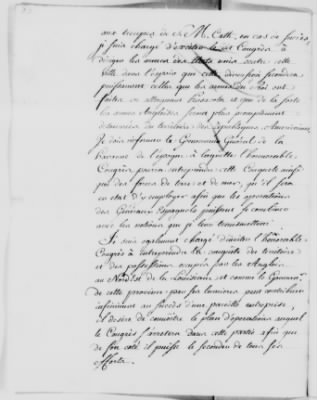 aux troupes de S. M. Cath. en cas de succès,
je suis chargé d'exciter le Congrès à
diriger les armes des Etats unis contre cette
ville dans l'espoir que cette diversion secondera
puissamment celles que les armes du Roi ont
faites en attaquant Pensacola et que de la sorte
les armes Anglaises seront plus promptement
détournées du territoire des républiques Américaines.
Je dois informer le Gouverneur Général de la
havanne de l'époque à laquelle l'honorable
Congrès pourra entreprendre cette Conquete ainsi
que des forces de terre et de mer, qu'il sera
en etat d'employer afin que les operations
des Généraux Espagnols puissent se combiner
avec les notions que je leur transmettrai.
Je suis egalement chargé d'inviter l'honorable
Congrès à entreprendre la conquete du territoire
et des possessions occupés par les Anglais
au Nord Est de la Louisiane et comme le Gouverneur
de cette province par ses lumieres peut contribuer
infiniment au succès d'une pareille entreprise,
il desire de connoitre le plan d'operations auquel
le Congrès s'arretera dans cette partie afin que
de son coté il puisse le seconder de tous ses
efforts.